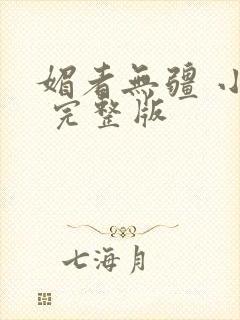 媚者無疆 小
完整版
七海月